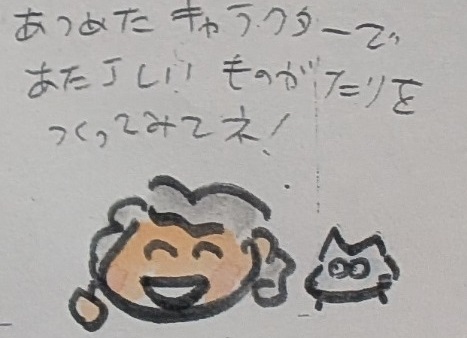 あつめた キャラクターで
あたらしい ものがたりを
つくってみてネ!